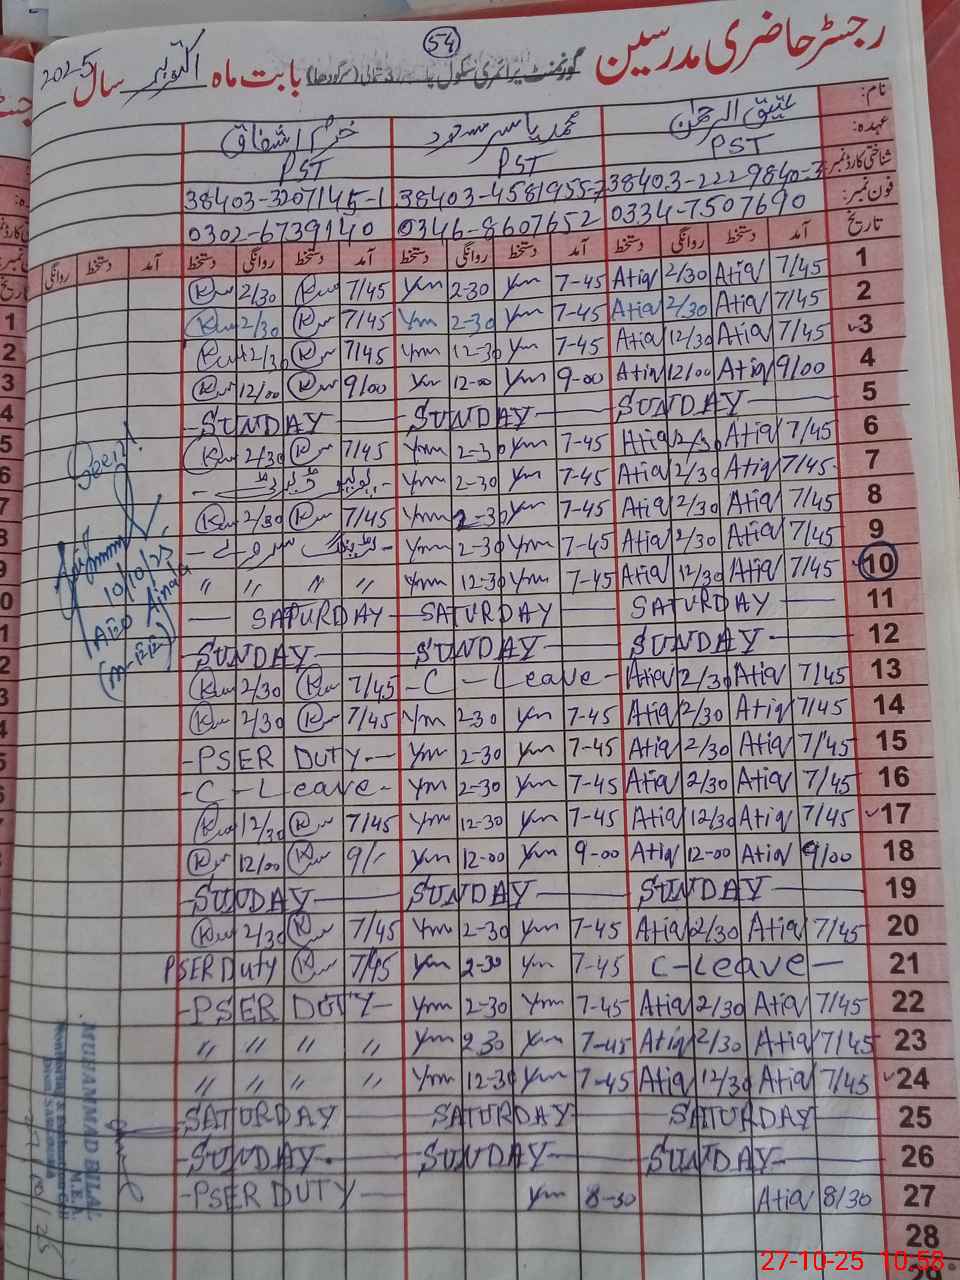 54
رجسٹر حاضری مدرسین گورنمنٹ پرائمری سکول (سرگودھا) بابت ماہ اکتوبر سال 2025
نام: عتیق الرحمن محمد یاسر مسعود خرم اشفاق
عہدہ: PST PST PST
شناختی کارڈ نمبر 38403-2229840-3 38403-4581955-7 38403-3207145-1
فون نمبر: 0334-7507690 0346-8607652 0302-6739140
تاریخ آمد دستخط روانگی دستخط آمد دستخط روانگی دستخط آمد دستخط روانگی دستخط آمد دستخط روانگی
1 7/45 Atiq 2/30 Atiq 7-45 Ym 2-30 Ym 7/45 2/30
2 7/45 Atiq 2/30 Atiq 7-45 Ym 2-30 Ym 7/45 2/30
3 7/45 Atiq 12/30 Atiq 7-45 Ym 12-30 Ym 7/45 12/30
4 9/00 Atiq 12/00 Atiq 9-00 Ym 12-00 Ym 9/00 12/00
5 SUNDAY SUNDAY SUNDAY
6 7/45 Atiq 2/30 Atiq 7-45 Ym 2-30 Ym 7/45 2/30
7 7/45 Atiq 2/30 Atiq 7-45 Ym 2-30 Ym
8 7/45 Atiq 2/30 Atiq 7-45 Ym 2-30 Ym 7/45 2/30
9 7/45 Atiq 2/30 Atiq 7-45 Ym 2-30 Ym
10 7/45 Atiq 12/30 Atiq 7-45 Ym 12-30 Ym 〃 〃 〃 〃
11 SATURDAY SATURDAY SATURDAY
12 SUNDAY SUNDAY SUNDAY
13 7/45 Atiq 2/30 Atiq C-Leave 7/45 2/30
14 7/45 Atiq 2/30 Atiq 7-45 Ym 2-30 Ym 7/45 2/30
15 7/45 Atiq 2/30 Atiq 7-45 Ym 2-30 Ym PSER DUTY
16 7/45 Atiq 2/30 Atiq 7-45 Ym 2-30 Ym C-Leave
17 7/45 Atiq 12/30 Atiq 7-45 Ym 12-30 Ym 7/45 12/30
18 9/00 Atiq 12-00 Atiq 9-00 Ym 12-00 Ym 9/- 12/00
19 SUNDAY SUNDAY SUNDAY
20 7/45 Atiq 2/30 Atiq 7-45 Ym 2-30 Ym 7/45 2/30
21 C-Leave 7-45 Ym 2-30 Ym 7/45 PSER Duty
22 7/45 Atiq 2/30 Atiq 7-45 Ym 2-30 Ym PSER DUTY
23 7/45 Atiq 2/30 Atiq 7-45 Ym 2.30 Ym 〃 〃 〃 〃
24 7/45 Atiq 12/30 Atiq 7-45 Ym 12-30 Ym 〃 〃 〃 〃
25 SATURDAY SATURDAY SATURDAY
26 SUNDAY SUNDAY SUNDAY
27 8/30 Atiq 8-30 Ym PSER DUTY
28
Seen!
10/10/25
MUHAMMAD BILAL
M.E.A
27-10-25 10:58